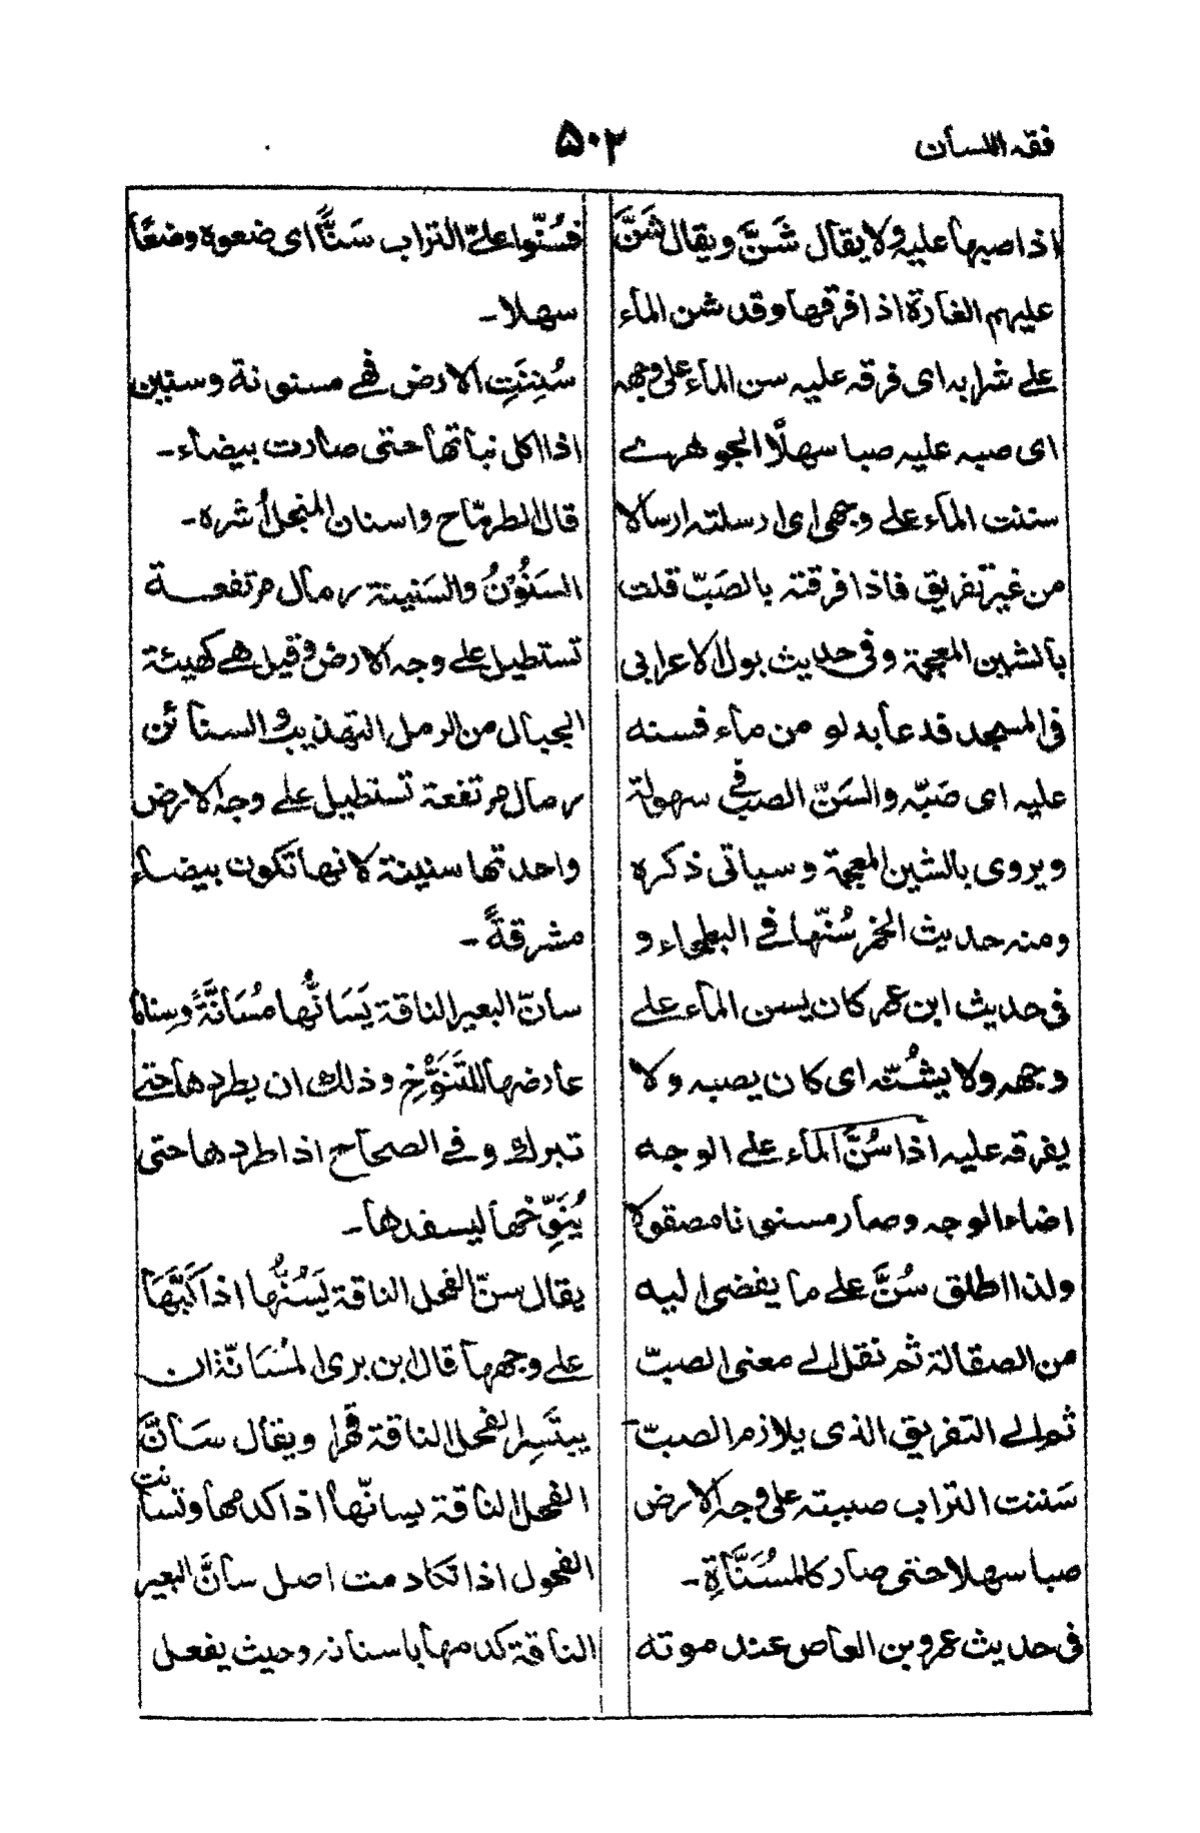 فقه اللسان
۵۰۲
اذا صبها عليه ولا يقال شَنَّ ويقال شَنَّ
عليهم الغارة اذا فرقها وقد شن الماء
على شرابه اى فرقه عليه سن الماء على وجهه
اى صبه عليه صبا سهلًا الجوهرے
سننت الماء على وجهى اى ارسلته ارسالا
من غير تفريق فاذا فرقته بالصَبّ قلت
بالشين المعجمة وفى حديث بول الاعرابى
فى المسجد فدعا بدلو من ماء فسنه
عليه اى صَبّه والسَنّ الصب فى سهولة
ويروى بالشين المعجمة وسياتى ذكره
ومنه حديث الخمر سُنّها فى البطحاء و
فى حديث ابن عمر كان يسن الماء على
وجهه ولا يشُنّه اى كان يصبه ولا
يفرقه عليه اذا سُنَّ الماء على الوجه
اضاء الوجه وصار مسنونا مصقولا
ولذا اطلق سُنَّ على ما يفضى اليه
من الصقالة ثم نقل الى معنى الصبّ
ثم الى التفريق الذى يلازم الصبّ
سَننت التراب صببته على وجه الارض
صبا سهلا حتى صار كالمُسَنَّاةِ۔
فى حديث عمرو بن العاص عند موته
فسُنّوا علىّ التراب سَنًّا اى ضعوه وضعًا
سهلا۔
سُنِنَتِ الارض فهے مسنونة وسنين
اذا اكل نباتها حتى صارت بيضاء۔
قال الطرمّاح واسنان المنجل أشره۔
السَنُوْنُ والسَنينة رمال مرتفعة
تستطيل على وجه الارض وقيل هے كهيئة
الجبال من الرمل التهذيب والسنائن
رمال مرتفعة تستطيل على وجه الارض
واحدتها سنينة لانها تكون بيضاء
مشرقةً۔
سانّ البعير الناقة يَسَانُّها مُسَانَّةً وسِنانا
عارضها للتَنَوُّخِ وذلك ان يطردها حتے
تبرك وفى الصحاح اذا طردها حتى
يُنَوِّخها ليسفدها۔
يقال سنّ الفحل الناقة يَسُنُّها اذا كَبَّهَا
على وجهها قال ابن برى المُسَانّة ان
يبتَسِر الفحل الناقة قهرا ويقال سَانَّ
الفحل الناقة يسانّها اذا كدمها وتسانت
الفحول اذا تكادمت اصل سانَّ البعير
الناقة كدمها باسنانه وحيث يفعل